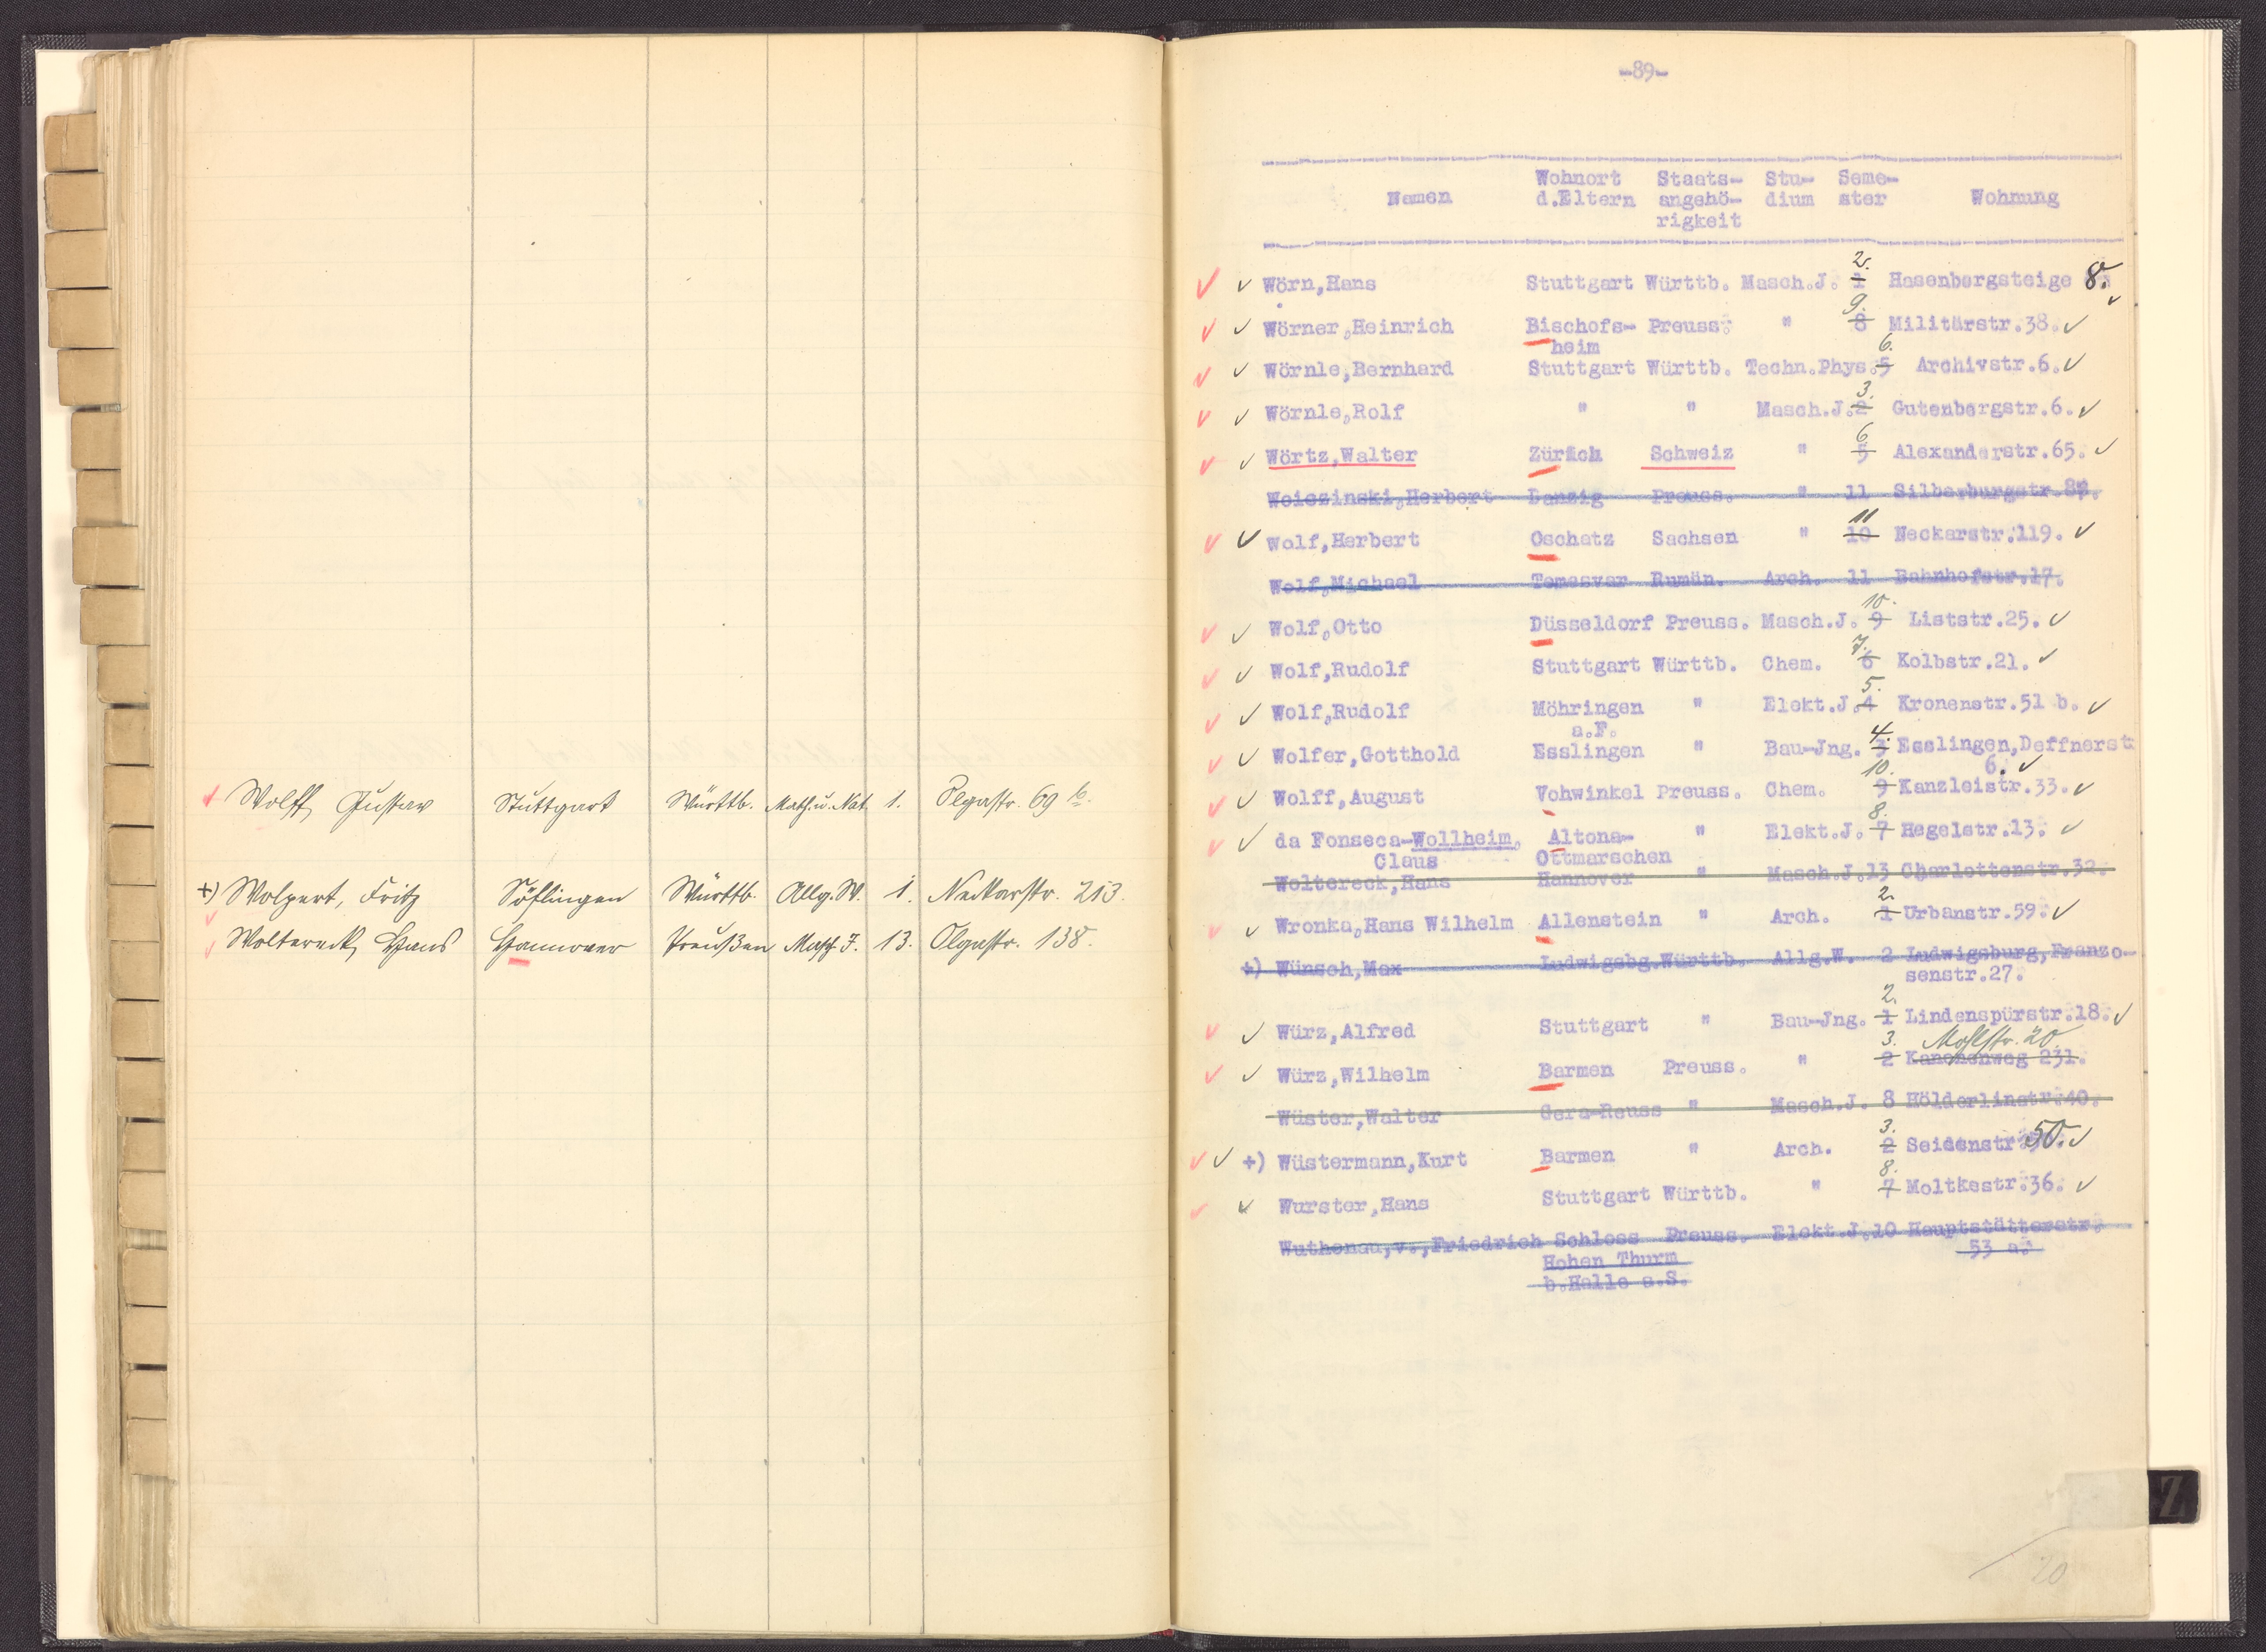 Wolff, Gustav Stuttgart Württb. Math. u. Nat. 1. Olgastr. 69 b.
+) Wolpert, Fritz Söflingen Württb. Allg. W. 1. Neckarstr. 213.
Woltereck, Hans Hannover Preußen Masch. J. 13. Olgastr. 138.
-89-
Namen Wohnort d.Eltern Staats-angehö-rigkeit Stu-dium Seme-ster Wohnung
2.
Wörn,Hans Stuttgart Württb. Masch.J. 1 Hasenbergsteige 8.
9.
Wörner,Heinrich Bischofs- Preuss. " 8 Militärstr.38.
heim
6.
Wörnle,Bernhard Stuttgart Württb. Techn.Phys.5 Archivstr.6.
3.
Wörnle,Rolf " " Masch.J.2 Gutenbergstr.6.
6.
Wörtz,Walter Zürich Schweiz " 5 Alexanderstr.65.
Woiezinski,Herbert Danzig Preuss. " 11 Silberburgstr.
11
Wolf,Herbert Oschatz Sachsen " 10 Neckarstr.119.
Wolf,Michael Temesvar Rumän. Arch. 11 Bahnhofstr.17.
10.
Wolf,Otto Düsseldorf Preuss. Masch.J. 9 Liststr.25.
7.
Wolf,Rudolf Stuttgart Württb. Chem. 6 Kolbstr.21.
5.
Wolf,Rudolf Möhringen " Elekt.J.4 Kronenstr.51 b.
a.F.
4.
Wolfer,Gotthold Esslingen " Bau-Jng. 3 Esslingen,Deffnerstr
6.
10.
Wolff,August Vohwinkel Preuss. Chem. 9 Kanzleistr.33.
8.
da Fonseca-Wollheim, Altona- " Elekt.J. 7 Hegelstr.13.
Claus Ottmarschen
Woltereck,Hans Hannover " Masch.J.13 Charlottenstr.32.
2.
Wronka,Hans Wilhelm Allenstein " Arch. 1 Urbanstr.59.
+) Wünsch,Max Ludwigsbg.Württb. Allg.W. 2 Ludwigsburg,Franzo-
senstr.27.
2.
Würz,Alfred Stuttgart " Bau-Jng. 1 Lindenspürstr.18.
3. Mohlstr. 20.
Würz,Wilhelm Barmen Preuss. " 2 Kanonenweg 231.
Wüster,Walter Gera-Reuss " Masch.J. 8 Hölderlinstr.40.
3.
+) Wüstermann,Kurt Barmen " Arch. 2 Seidenstr.50.
8.
Wurster,Hans Stuttgart Württb. " 7 Moltkestr.36.
Wuthenau,v.,Friedrich Schloss Preuss. Elekt.J.10 Hauptstätterstr.
Hohen Thurm 53 a.
b.Halle a.S.
Z
20